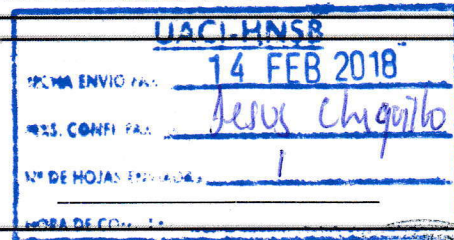 UACI-HNSB
FECHA ENVIO FAX 14 FEB 2018
PERS. CONFI. FAX Jesus Chiquillo
Nº DE HOJAS ENVIADAS 1
HORA DE